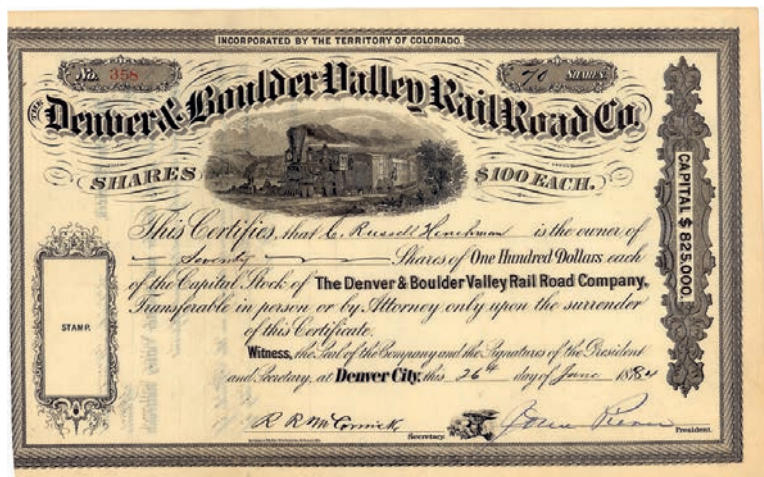 INCORPORATED BY THE TERRITORY OF COLORADO.
No. 358
70 SHARES
THE
Denver & Boulder Valley Rail Road Co.
SHARES $100 EACH.
CAPITAL $825,000.
This Certifies, that C. Russell Hinchman is the owner of
Seventy Shares of One Hundred Dollars each
of the Capital Stock of The Denver & Boulder Valley Rail Road Company,
Transferable in person or by Attorney only upon the surrender
of this Certificate.
STAMP.
Witness, the Seal of the Company and the Signatures of the President
and Secretary, at Denver City, this 26th day of June 1884
R R McCormick
Secretary.
President.